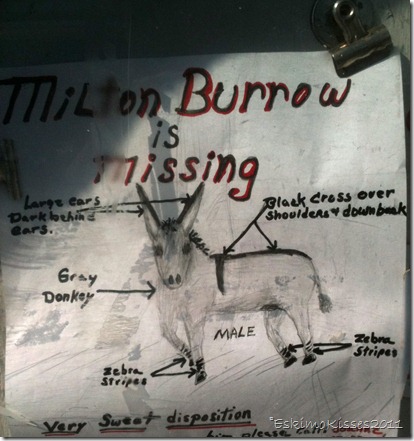 Milton Burrow
is
missing
Large ears
Dark behind
ears.
Black cross over
shoulders & down back
Gray
Donkey
MALE
Zebra
Stripes
Zebra
Stripes
Very Sweet disposition
him please
EskimoKisses2011